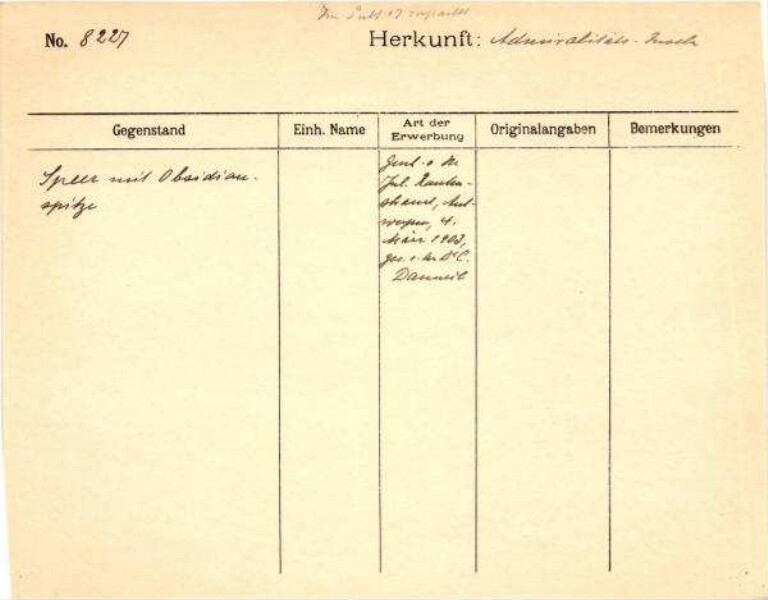 No. 8227
Herkunft: Admiralitäts-Inseln
Gegenstand
Einh. Name
Art der
Erwerbung
Originalangaben
Bemerkungen
Speer mit Obsidian-
spitze
Jul.
werpen, 4.
März 1903,
ges. v. Hr. Dr C.
Danneil